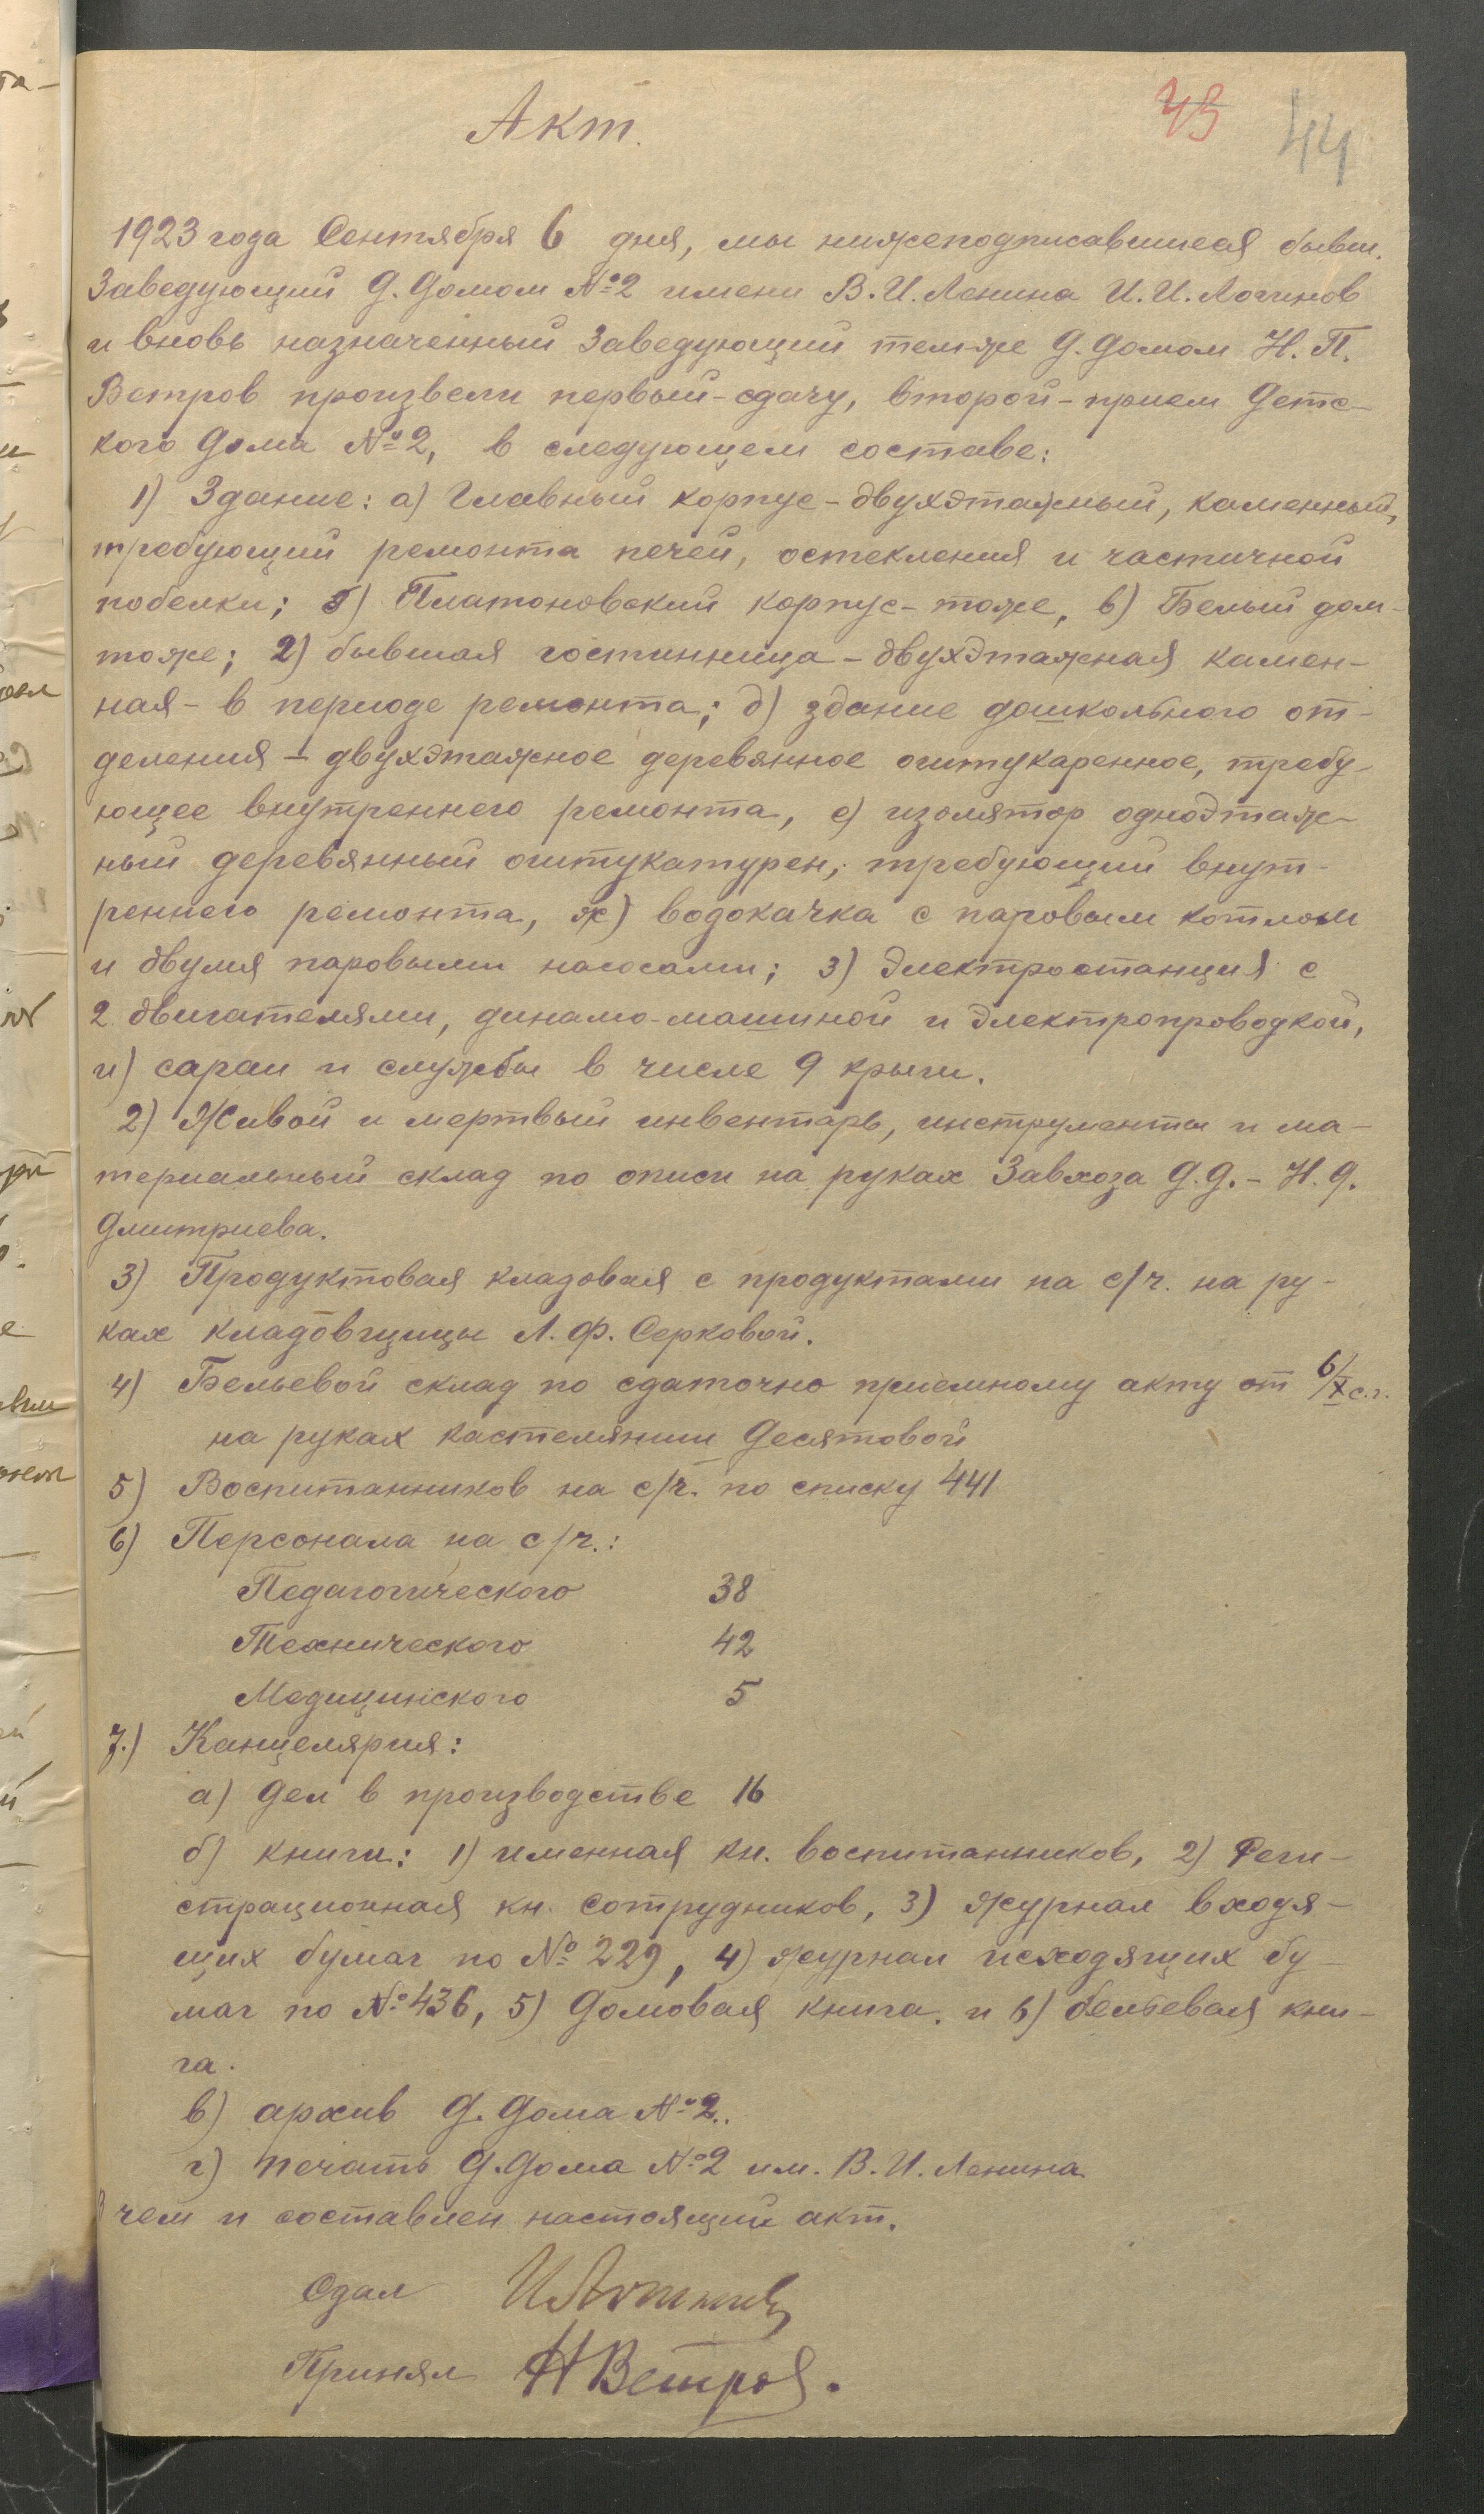 Акт.
43
44
1923 года Сентября 6 дня, мы нижеподписавшиеся бывш.
Заведующий Д. Домом №2 имени В. И. Ленина И. И. Логинов
и вновь назначенный Заведующий тем-же Д. Домом Н. П.
Ветров произвели первый - сдачу, второй - прием Детс-
кого Дома №2, в следующем составе:
1) Здание: а) Главный корпус - двухэтажный, каменный,
требующий ремонта печей, остекления и частичной
побелки; б) Платоновский корпус - тоже, в) Белый дом -
тоже; 2) бывшая гостинница - двухэтажная камен-
ная - в периоде ремонта; д) здание дошкольного от-
деления - двухэтажное деревянное оштукаренное, требу-
ющее внутреннего ремонта, е) изолятор одноэтаж-
ный деревянный оштукатурен, требующий внут-
реннего ремонта, ж) водокачка с паровым котлом
и двумя паровыми насосами; з) электростанция с
2 двигателями, динамо-машиной и электропроводкой,
и) сараи и службы в числе 9 крыш.
2) Живой и мертвый инвентарь, инструменты и ма-
териальный склад по описи на руках Завхоза Д. Д. - Н. Д.
Дмитриева.
3) Продуктовая кладовая с продуктами на с/ч. на ру-
ках кладовщицы Л. Ф. Серковой.
4) Бельевой склад по сдаточно приемному акту от 6/X с.г.
на руках кастелянши Десятовой
5) Воспитанников на с/ч. по списку 441
6) Персонала на с/ч.:
Педагогического 38
Технического 42
Медицинского 5
7.) Канцелярия:
а) Дел в производстве 16
б) книги: 1) именная кн. воспитанников, 2) Реги-
страционная кн. сотрудников, 3) журнал входя-
щих бумаг по № 229, 4) журнал исходящих бу-
маг по № 436, 5) Домовая книга. и 6) бельевая кни-
га.
в) архив Д. Дома №2..
г) печать Д. Дома №2 им. В. И. Ленина
В чем и составлен настоящий акт.
Сдал ИЛогинов
Принял НВетров.